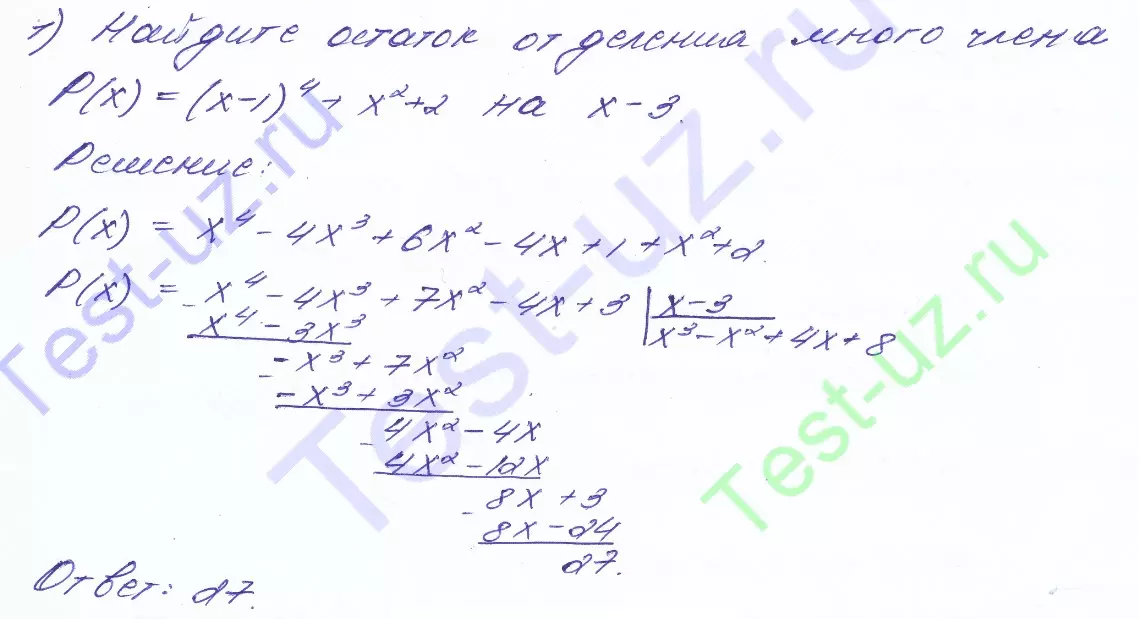 1) Найдите остаток от деления много члена
P(x) = (x-1)⁴ + x²+2 на x-3.
Решение:
P(x) = x⁴ - 4x³ + 6x² - 4x + 1 + x²+2.
P(x) = x⁴ - 4x³ + 7x² - 4x + 3 | x-3
x⁴ - 3x³ | x³ - x² + 4x + 8
- x³ + 7x²
- x³ + 3x²
4x² - 4x
4x² - 12x
8x + 3
8x - 24
27.
Ответ: 27.
Test-uz.ru
Test-uz.ru
Test-uz.ru